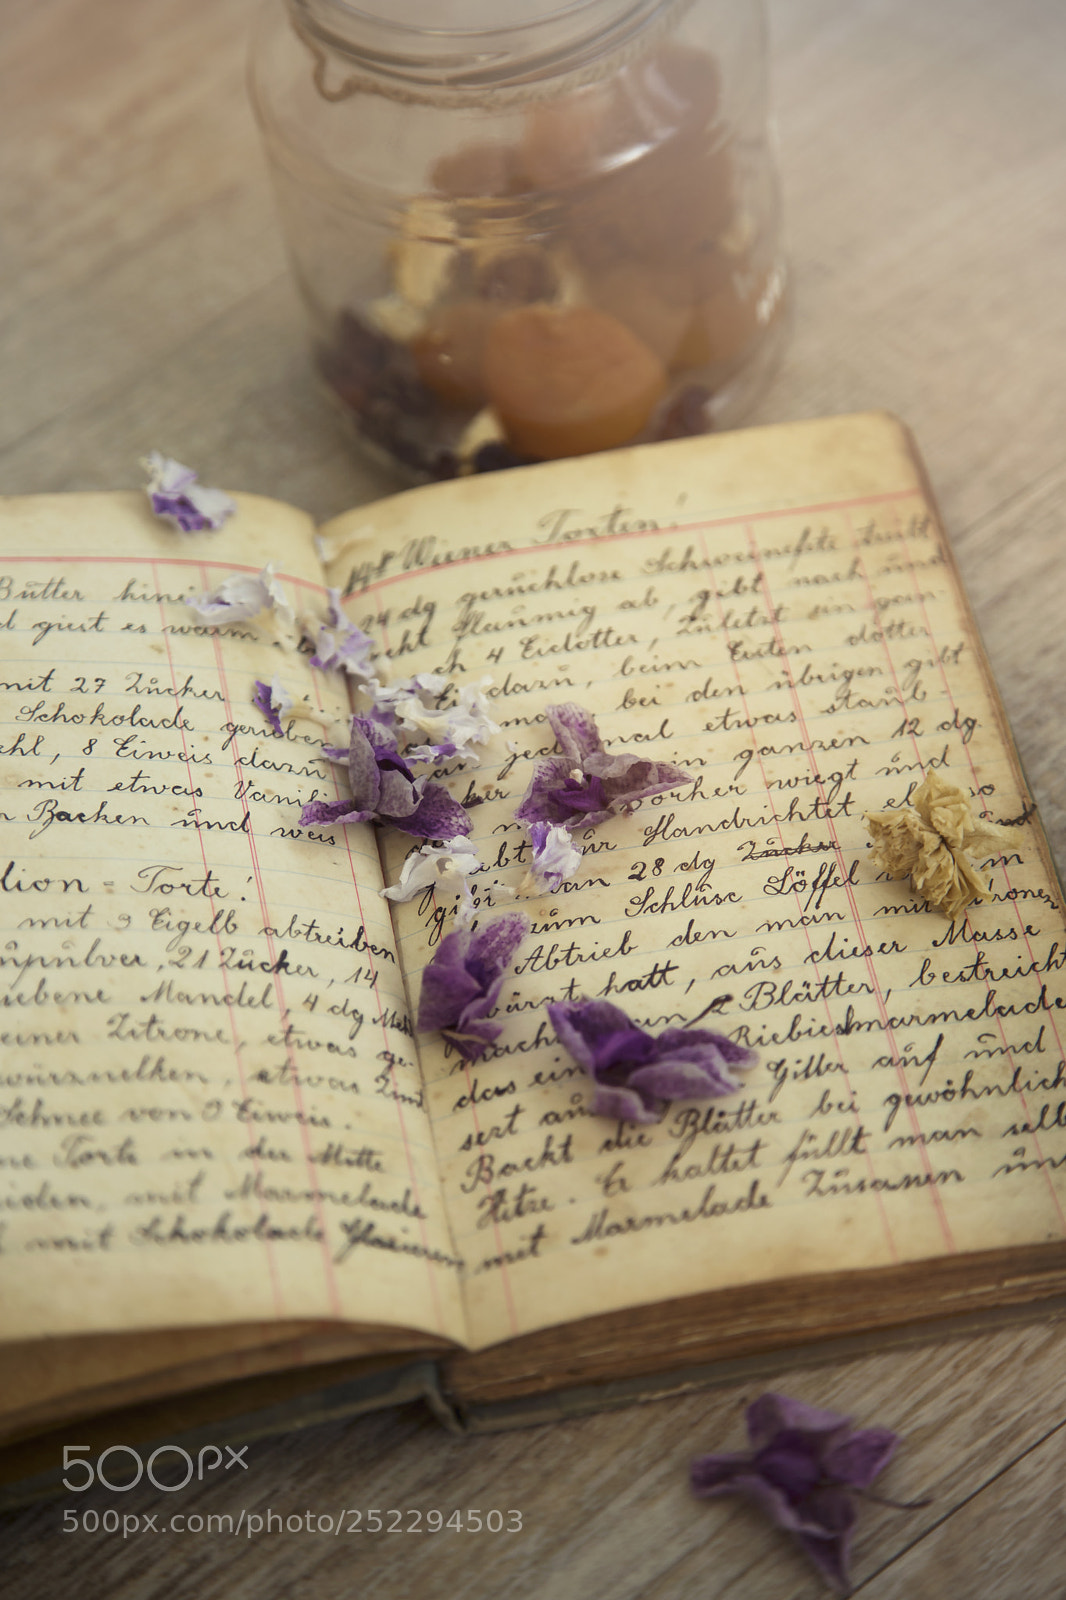 Butter hinei
giest es warm
mit 27 Zucker
Schokolade gerieben
ehl, 8 Eiweis dazu
mit etwas Vanili
n Backen und weis
lion = Torte!
mit 9 Eigelb abtreiben
npulver, 21 Zucker, 14
iebene Mandel, 4 dg Mehl
einer Zitrone, etwas ge-
würznelken, etwas Zimd
Schnee von 9 Eiweis.
ne Torte in der Mitte
mit Marmelade
mit Schokolade Glasieren
Wiener Torten!
24 dg geruchlose Schweinefste treibt
flaumig ab, gibt nach und
ch 4 Eidotter, Zuletzt ein gan-
Ei dazu, beim Ersten dotter
bei den übrigen gibt
jed mal etwas staub-
in ganzen 12 dg.
ker vorher wiegt und
ur Handrichtet, so
ebt 28 dg Zucker und
gi zum Schluse Löffel im
Abtrieb den man mit
hatt, aus dieser Masse
mach 2 Blätter, bestreicht
das ein Riebieslmarmelade
sezt auf Gitter auf und
Backt die Blätter bei gewöhnlich
Hitze. Er kaltet füllt man selb
mit Marmelade Zusamen un
500px
500px.com/photo/252294503